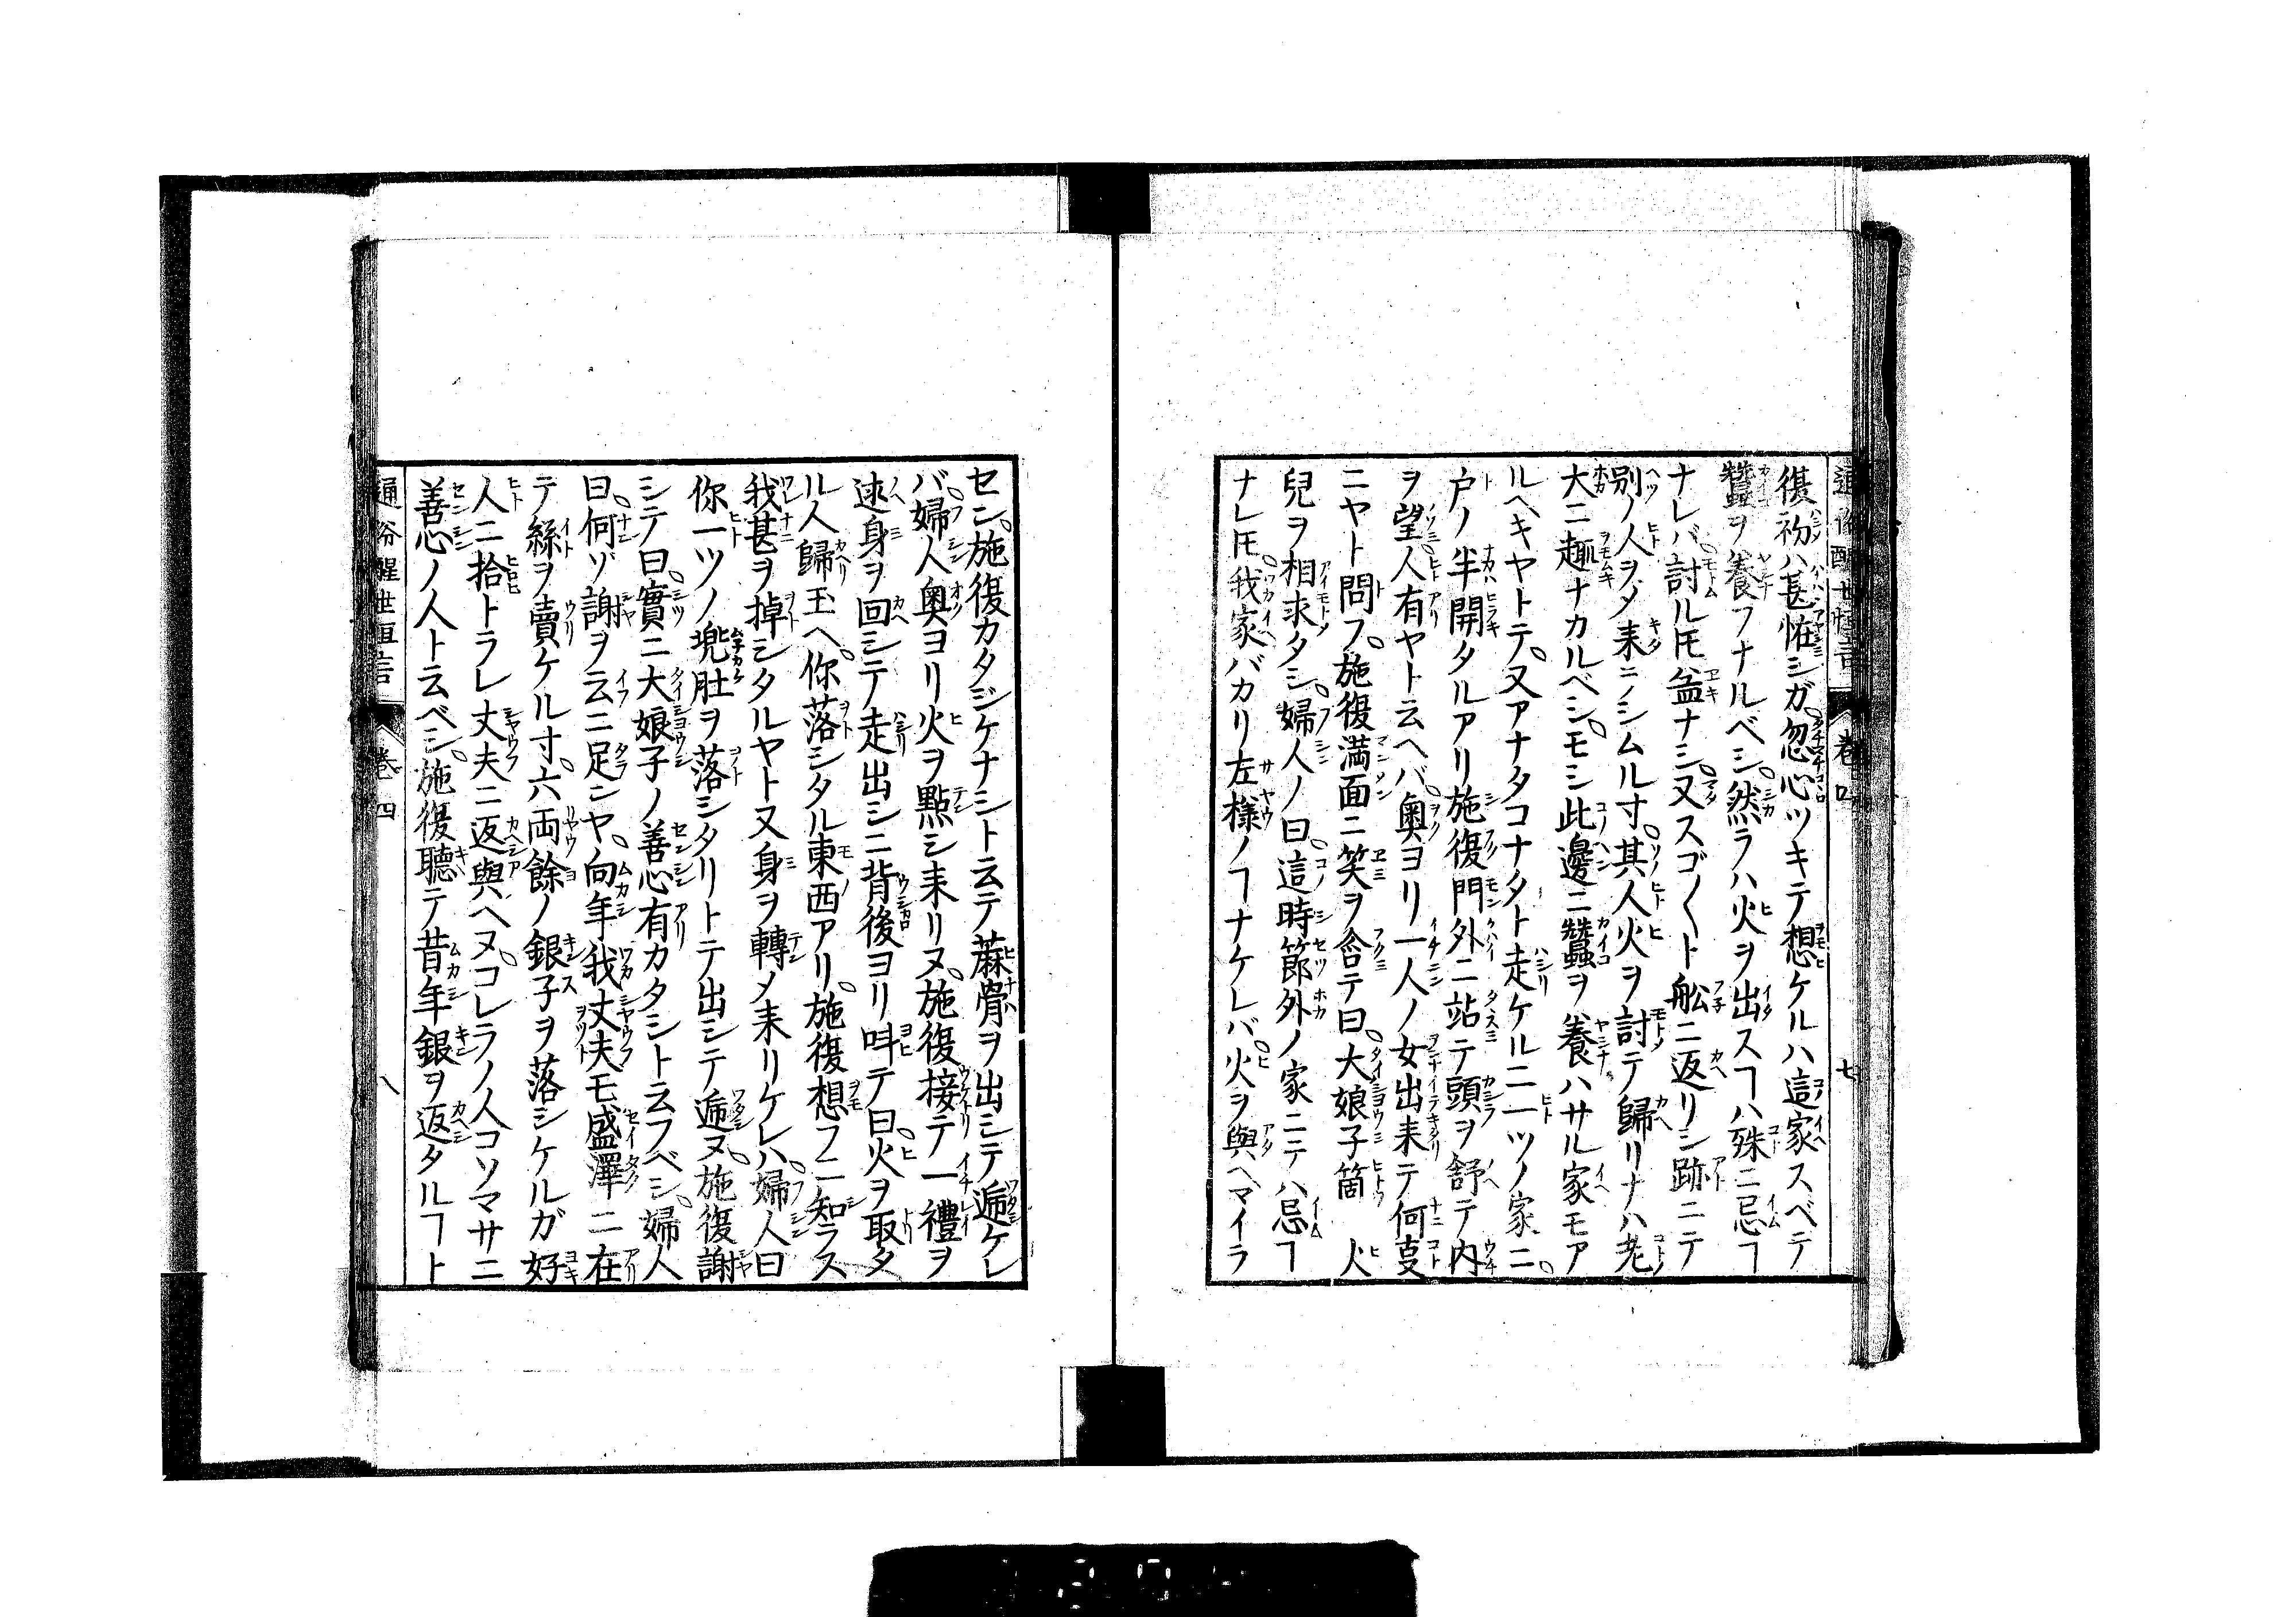 通俗醒世恒言　卷四　七
復初ハ甚恠シガ忽心ツキテ想ケルハ這家スベテ
蠶ヲ養フナルベシ然ラハ火ヲ出スヿハ殊ニ忌ヿ
ナレバ討ルトモ益ナシ又スゴ〱ト舩ニ返リシ跡ニテ
別ノ人ヲノ来ニノシムル寸其人火ヲ討テ歸リナハ老
大ニ趣ナカルベシモシ此邊ニ蠶ヲ養ハサル家モア
ルヘキヤトテ又アナタコナタト走ケルニ一ツノ家ニ
戸ノ半開タルアリ施復門外ニ站テ頭ヲ舒テ内
ヲ望人有ヤト云ヘバ奥ヨリ一人ノ女出来テ何叓
ニヤト問フ施復満面ニ笑ヲ含テ曰大娘子箇火
兒ヲ相求タシ婦人ノ曰這時節外ノ家ニテハ忌ヿ
ナレ𪜈我家バカリ左様ノヿナケレバ火ヲ與ヘマイラ
セン施復カタジケナシト云テ蔴骨ヲ出シテ逓ケレ
バ婦人奥ヨリ火ヲ點シ来リヌ施復接テ一禮ヲ
逑身ヲ回シテ走出シニ背後ヨリ呌テ曰火ヲ取タ
ル人歸玉ヘ你落シタル東西アリ施復想フニ知ラス
我甚ヲ掉シタルヤト又身ヲ轉メ来リケレハ婦人曰
你一ツノ兠肚ヲ落シタリトテ出シテ逓ヌ施復謝
シテ曰實ニ大娘子ノ善心有カタシト云フベシ婦人
曰何ゾ謝ヲ云ニ足ンヤ向年我丈夫モ盛澤ニ在
テ絲ヲ賣ケル寸六両餘ノ銀子ヲ落シケルガ好
人ニ拾トラレ丈夫ニ返與ヘヌコレラノ人コソマサニ
善心ノ人ト云ベシ施復聴テ昔年銀ヲ返タルヿト
通俗醒世恒言　卷四　八